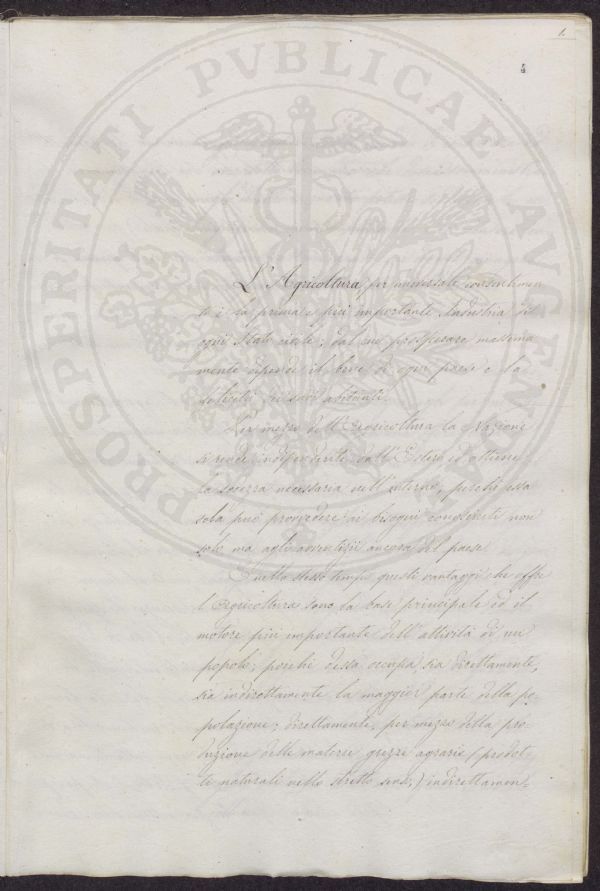 1.
4
PROSPERITATI PVBLICAE AVGENDAE
L'Agricoltura, per universale consentimen-
to è la prima e più importante Industria di
ogni Stato civile; dal cui prosperare massima-
mente dipende il bene di ogni paese e la
felicità dei suoi abitanti.
Per mezzo dell'Agricoltura la Nazione
si rende indipendente dall'Estero ed ottiene
la forza necessaria nell'interno, perchè essa
sola può provvedere ai bisogni consueti non
solo ma agli avventizii ancora del paese.
Nello stesso tempo questi vantaggi che offre
l'Agricoltura sono la base principale ed il
motore più importante dell'attività di un
popolo; poichè dessa occupa, sia direttamente,
sia indirettamente la maggior parte della po-
polazione; direttamente, per mezzo della pro-
duzione delle materie grezze agrarie (prodot-
ti naturali nello stretto senso;) indirettamen-